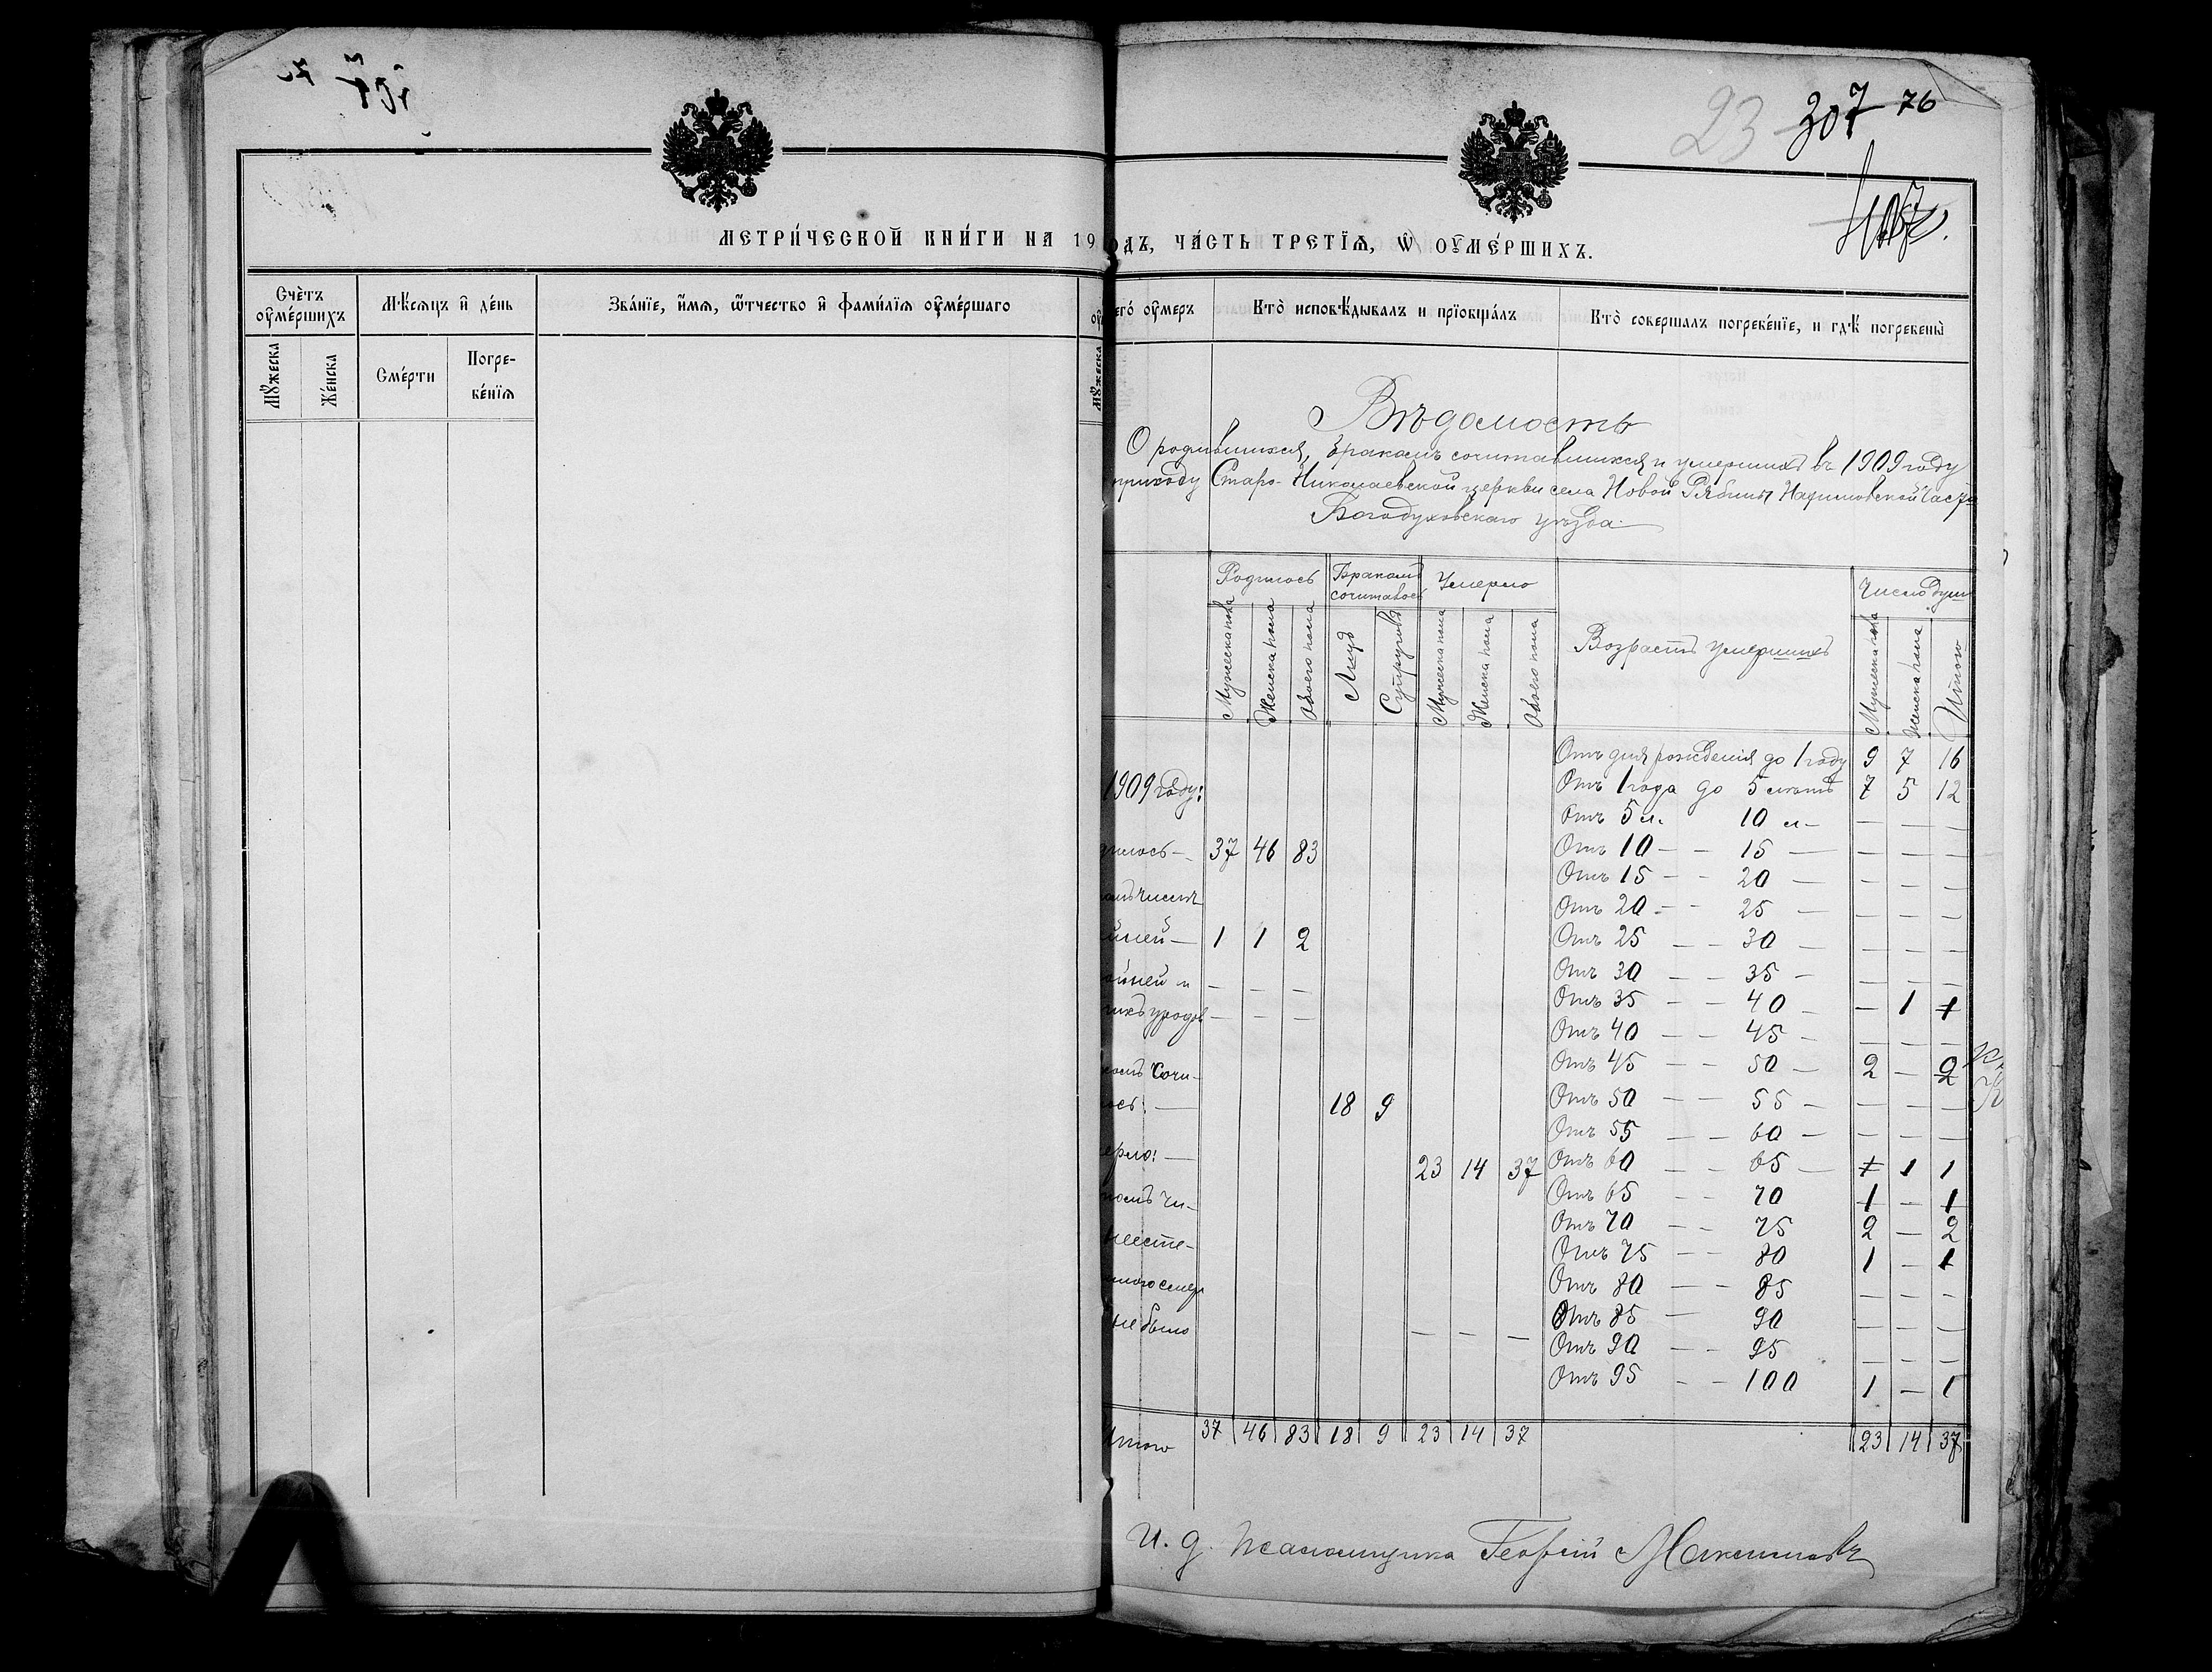 23 307 76
МЕТРИ́ЧЕСКОЙ КНИ́ГИ НА 19
ОДЪ, ЧА́СТЬ ТРЕТЇѦ, Ѡ ОУМЕ́РШИХЪ.
Счётъ оуме́ршихъ
Мѣ́сяцъ и҆ де́нь
Зва́нїе, и҆́мѧ, ѻ҆́тчество и҆ фами́лїѧ оуме́ршаго
Мꙋ́жеска
Же́нска
Сме́рти
Погре-
бе́нїѧ
Мꙋ́жеска
его́ оу҆меръ
Кто̀ исповѣ́дывалъ и прїобща́лъ
Кто̀ соверша́лъ погребе́нїе, и гдѣ̀ погребены̀
Вѣдомость
О родившихся, бракомъ сочитавшихся и умершихъ въ 1909 году
приходу Старо-Николаевской церкви села Новой Рябины
Богодуховскаго уѣзда.
Родилось
Бракомъ сочиталось
Умерло
Возрастъ умершихъ
Число душ
Мужеска пола
Женска пола
Обоего пола
Лицъ
Супруговъ
Мужеска пола
Женска пола
Обоего пола
Мужеска пола
Женска пола
Итого
Отъ дня рожденія до 1 году 9 7 16
1909 году:
Отъ 1 года до 5 лѣтъ 7 5 12
Отъ 5 л. 10 л — — — —
дилось — 37 46 83
Отъ 10 — — 15 — — — —
Отъ 15 — — 20 — — — —
омъ числѣ
Отъ 20 — — 25 — — — —
йней — 1 1 2
Отъ 25 — — 30 — — — —
ойней и — — —
Отъ 30 — — 35 — — — —
Отъ 35 — — 40 — — 1 1
уродов — — —
Отъ 40 — — 45 — — — —
комъ сочи-
Отъ 45 — — 50 — 2 — 2
ось: — 18 9
Отъ 50 — — 55 — — — —
Отъ 55 — — 60 — — — —
ерло: — 23 14 37
Отъ 60 — — 65 — 1 1
Отъ 65 — — 70 1 — 1
томъ чи-
Отъ 70 — — 75 2 — 2
Отъ 75 — — 80 1 — 1
Отъ 80 — — 85 — — —
не было — — —
Отъ 85 — 90 — — —
Отъ 90 — — 95 — — —
Отъ 95 — — 100 1 — 1
Итого 37 46 83 18 9 23 14 37 23 14 37
И. д. псаломщика Георгій Максимовъ